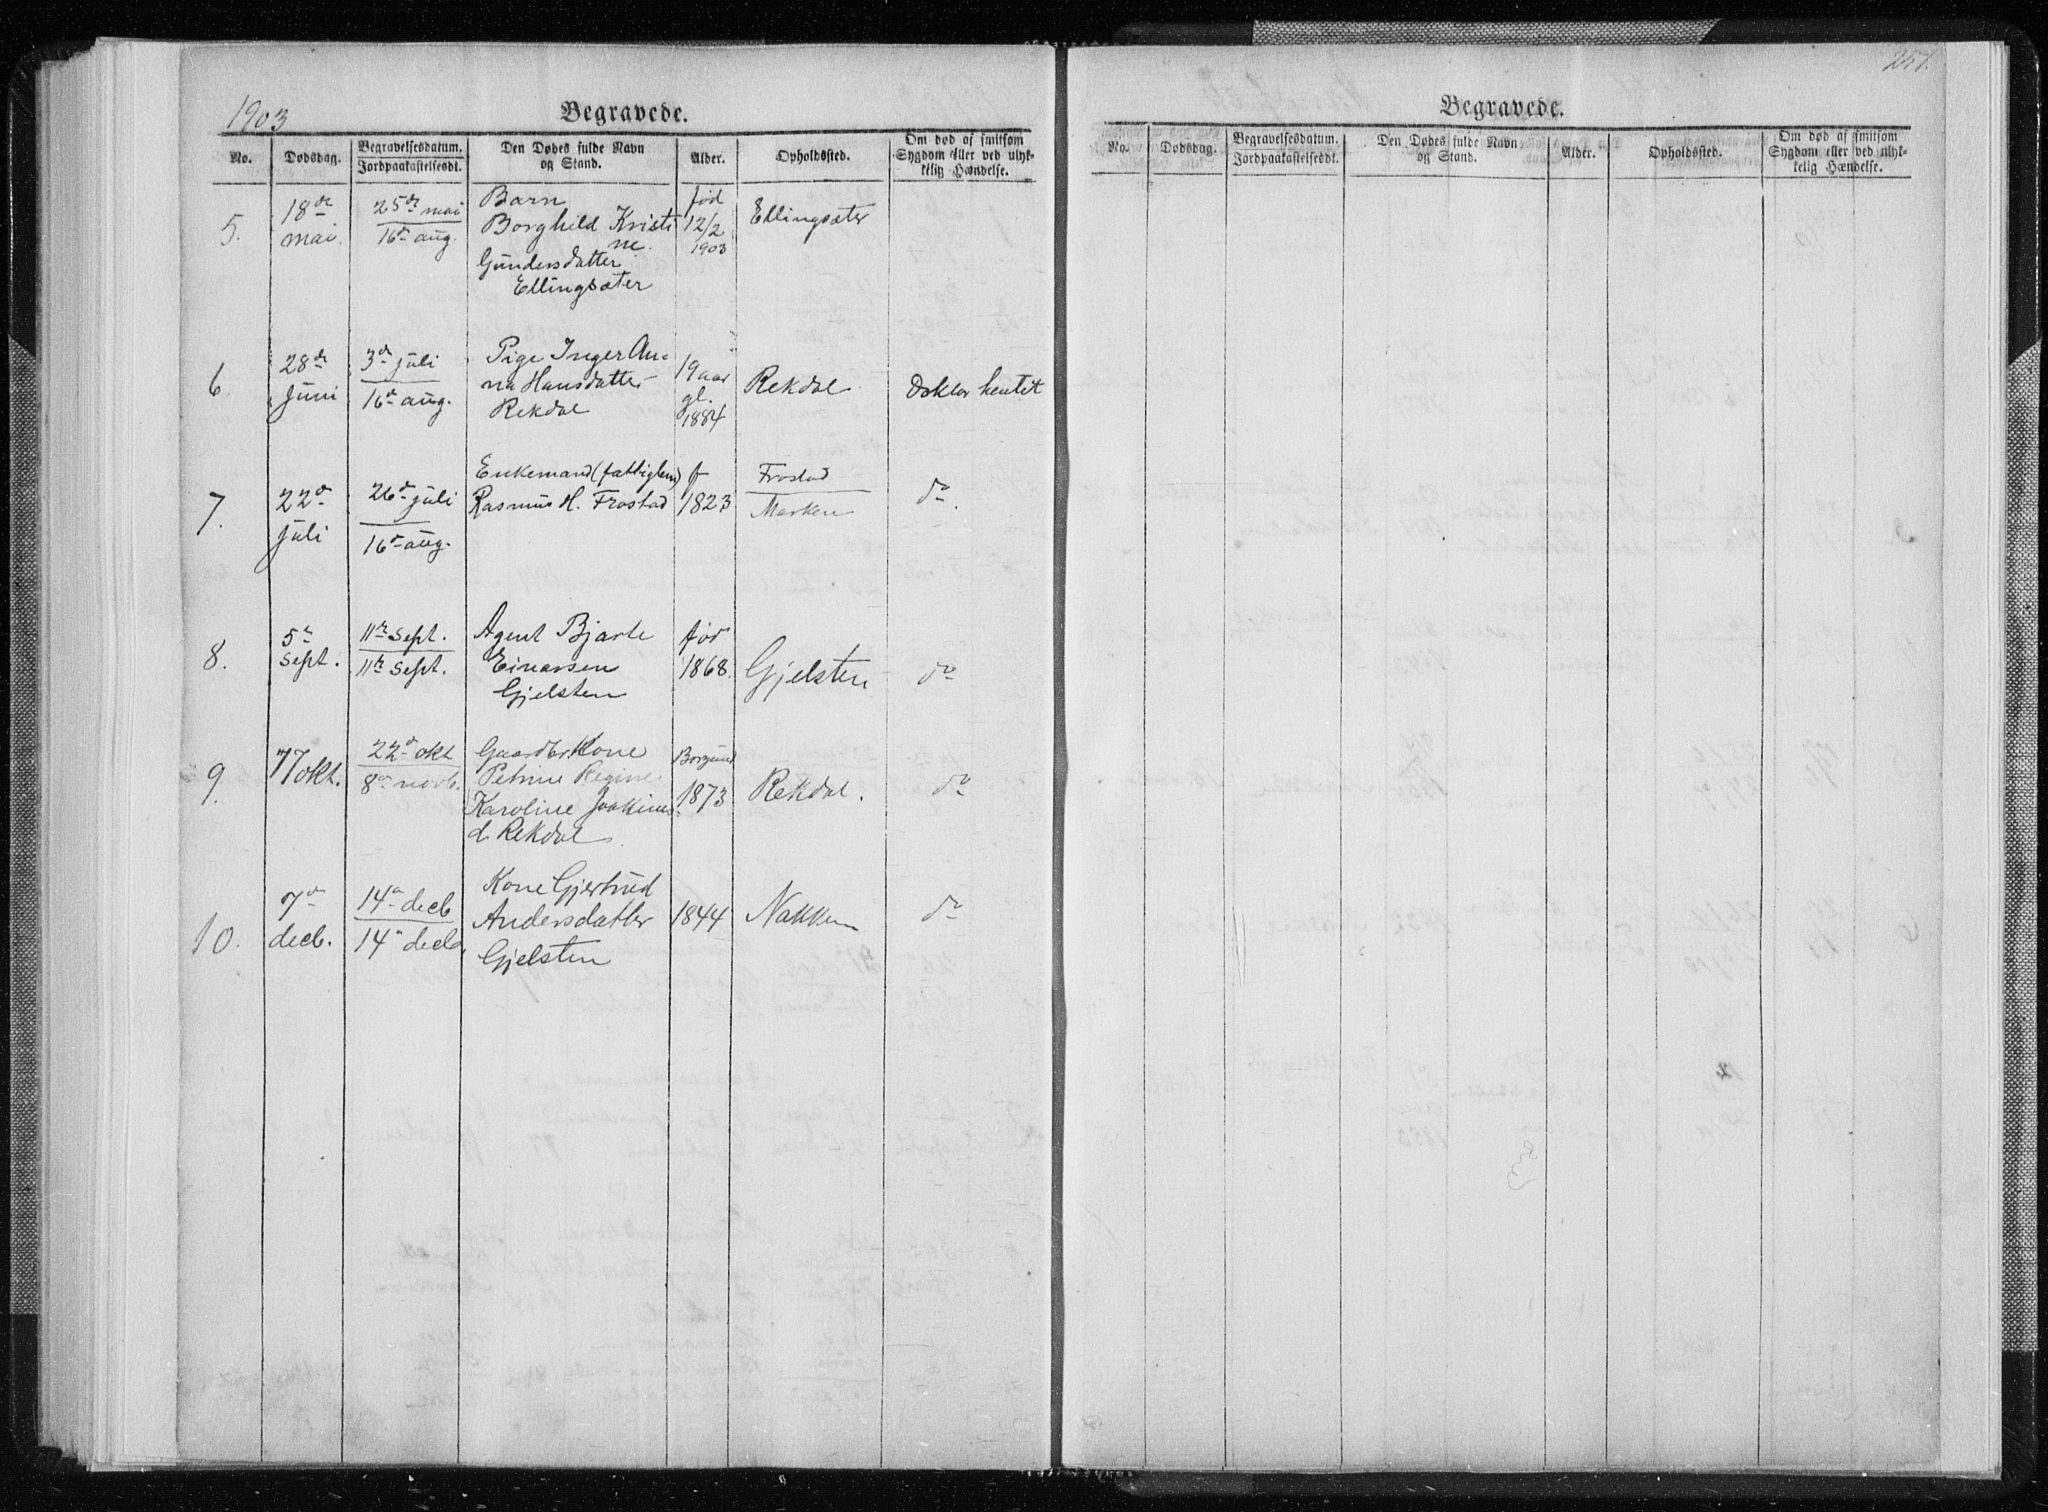 1903
Begravede.
No.
Dødsdag.
Begravelsesdatum.
Jordpaakastelsesdt.
Den Dødes fulde Navn
og Stand.
Alder.
Opholdssted.
Om død af smitsom
Sygdom eller ved ulyk-
kelig Hændelse.
5.
18de
mai.
25de mai
16de aug.
Barn
Borghild Kristi
ne.
Gundersdatter
Ellingsæter
fød
12/2
1903
Ellingsæter
6.
28de
Juni
3de juli
16de aug.
Pige Inger An-
na Hansdatter
Rekdal
19 aar
gl.
1884
Rekdal
Doktor hentet
7.
22de
juli
26de juli
16de aug.
Enkemand (fattiglem)
Rasmus H. Frostad
f
1823
Frostad
Marken
do.
8.
5te
sept.
11te sept.
11te sept.
Agent Bjarte
Einarsen
Gjelsten
fød
1868.
Gjelsten
do
9.
17 okt.
22de okt
8de novb.
Gaardbr Kone
Petrine Regine
Karoline Joakims-
d. Rekdal
Borgund
1873
Rekdal.
do
10.
7de
decb.
14de decb
14de decb.
Kone Gjertrud
Andersdatter
Gjelsten
1844
Nakken
do
251.
Begravede.
No.
Dødsdag.
Begravelsesdatum.
Jordpaakastelsesdt.
Den Dødes fulde Navn
og Stand.
Alder.
Opholdssted.
Om død af smitsom
Sygdom eller ved ulyk-
kelig Hændelse.